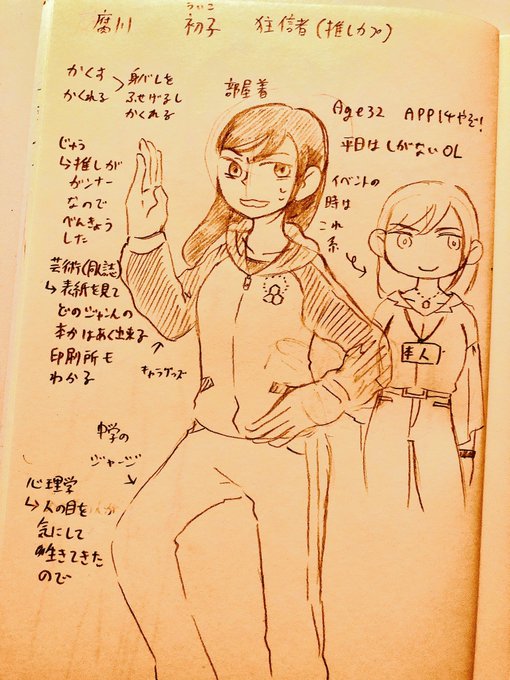 ういこ
腐川 初子 狂信者(推しカプ)
かくす
かくれる
身バレを
ふせげるし
かくれる
部屋着
Age32 APP14やぞ!
平日はしがないOL
じゅう
↳推しが
ガンナー
なので
べんきょう
した
イベントの
時は
これ
系
芸術(同人誌)
↳表紙を見て
どのジャンルの
本かはあく出来る
印刷所も
わかる
キャラグッズ
本人
中学の
ジャージ
心理学
↳人の目を
気にして
生きてきた
ので